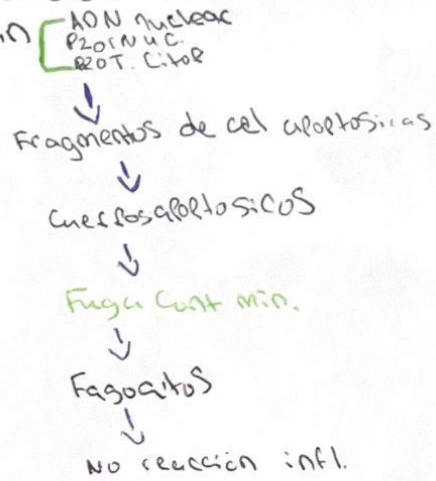 ADN nuclear
Prot Nuc.
Prot. Citop
Fragmentos de cel apoptosicas
Cuerpos apoptosicos
Fuga Cont min.
Fagocitos
No reacción infl.